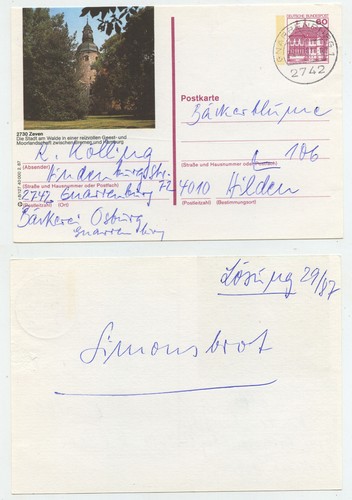 DEUTSCHE BUNDESPOST
60
GNARRENBURG 1
2742
Postkarte
Bäckerblume
2730 Zeven
Die Stadt am Walde in einer reizvollen Geest- und
Moorlandschaft zwischen Bremen und Hamburg
K. Kolling
(Absender)
Hindenburgstr.
(Straße und Hausnummer oder Postfach)
2742 Gnarrenburg 72
(Postleitzahl) (Ort)
Bäckerei Osburg
Gnarrenburg
106
(Straße und Hausnummer oder Postfach)
4010 Hilden
(Postleitzahl) (Bestimmungsort)
Lösung 29/87
Simonsbrot